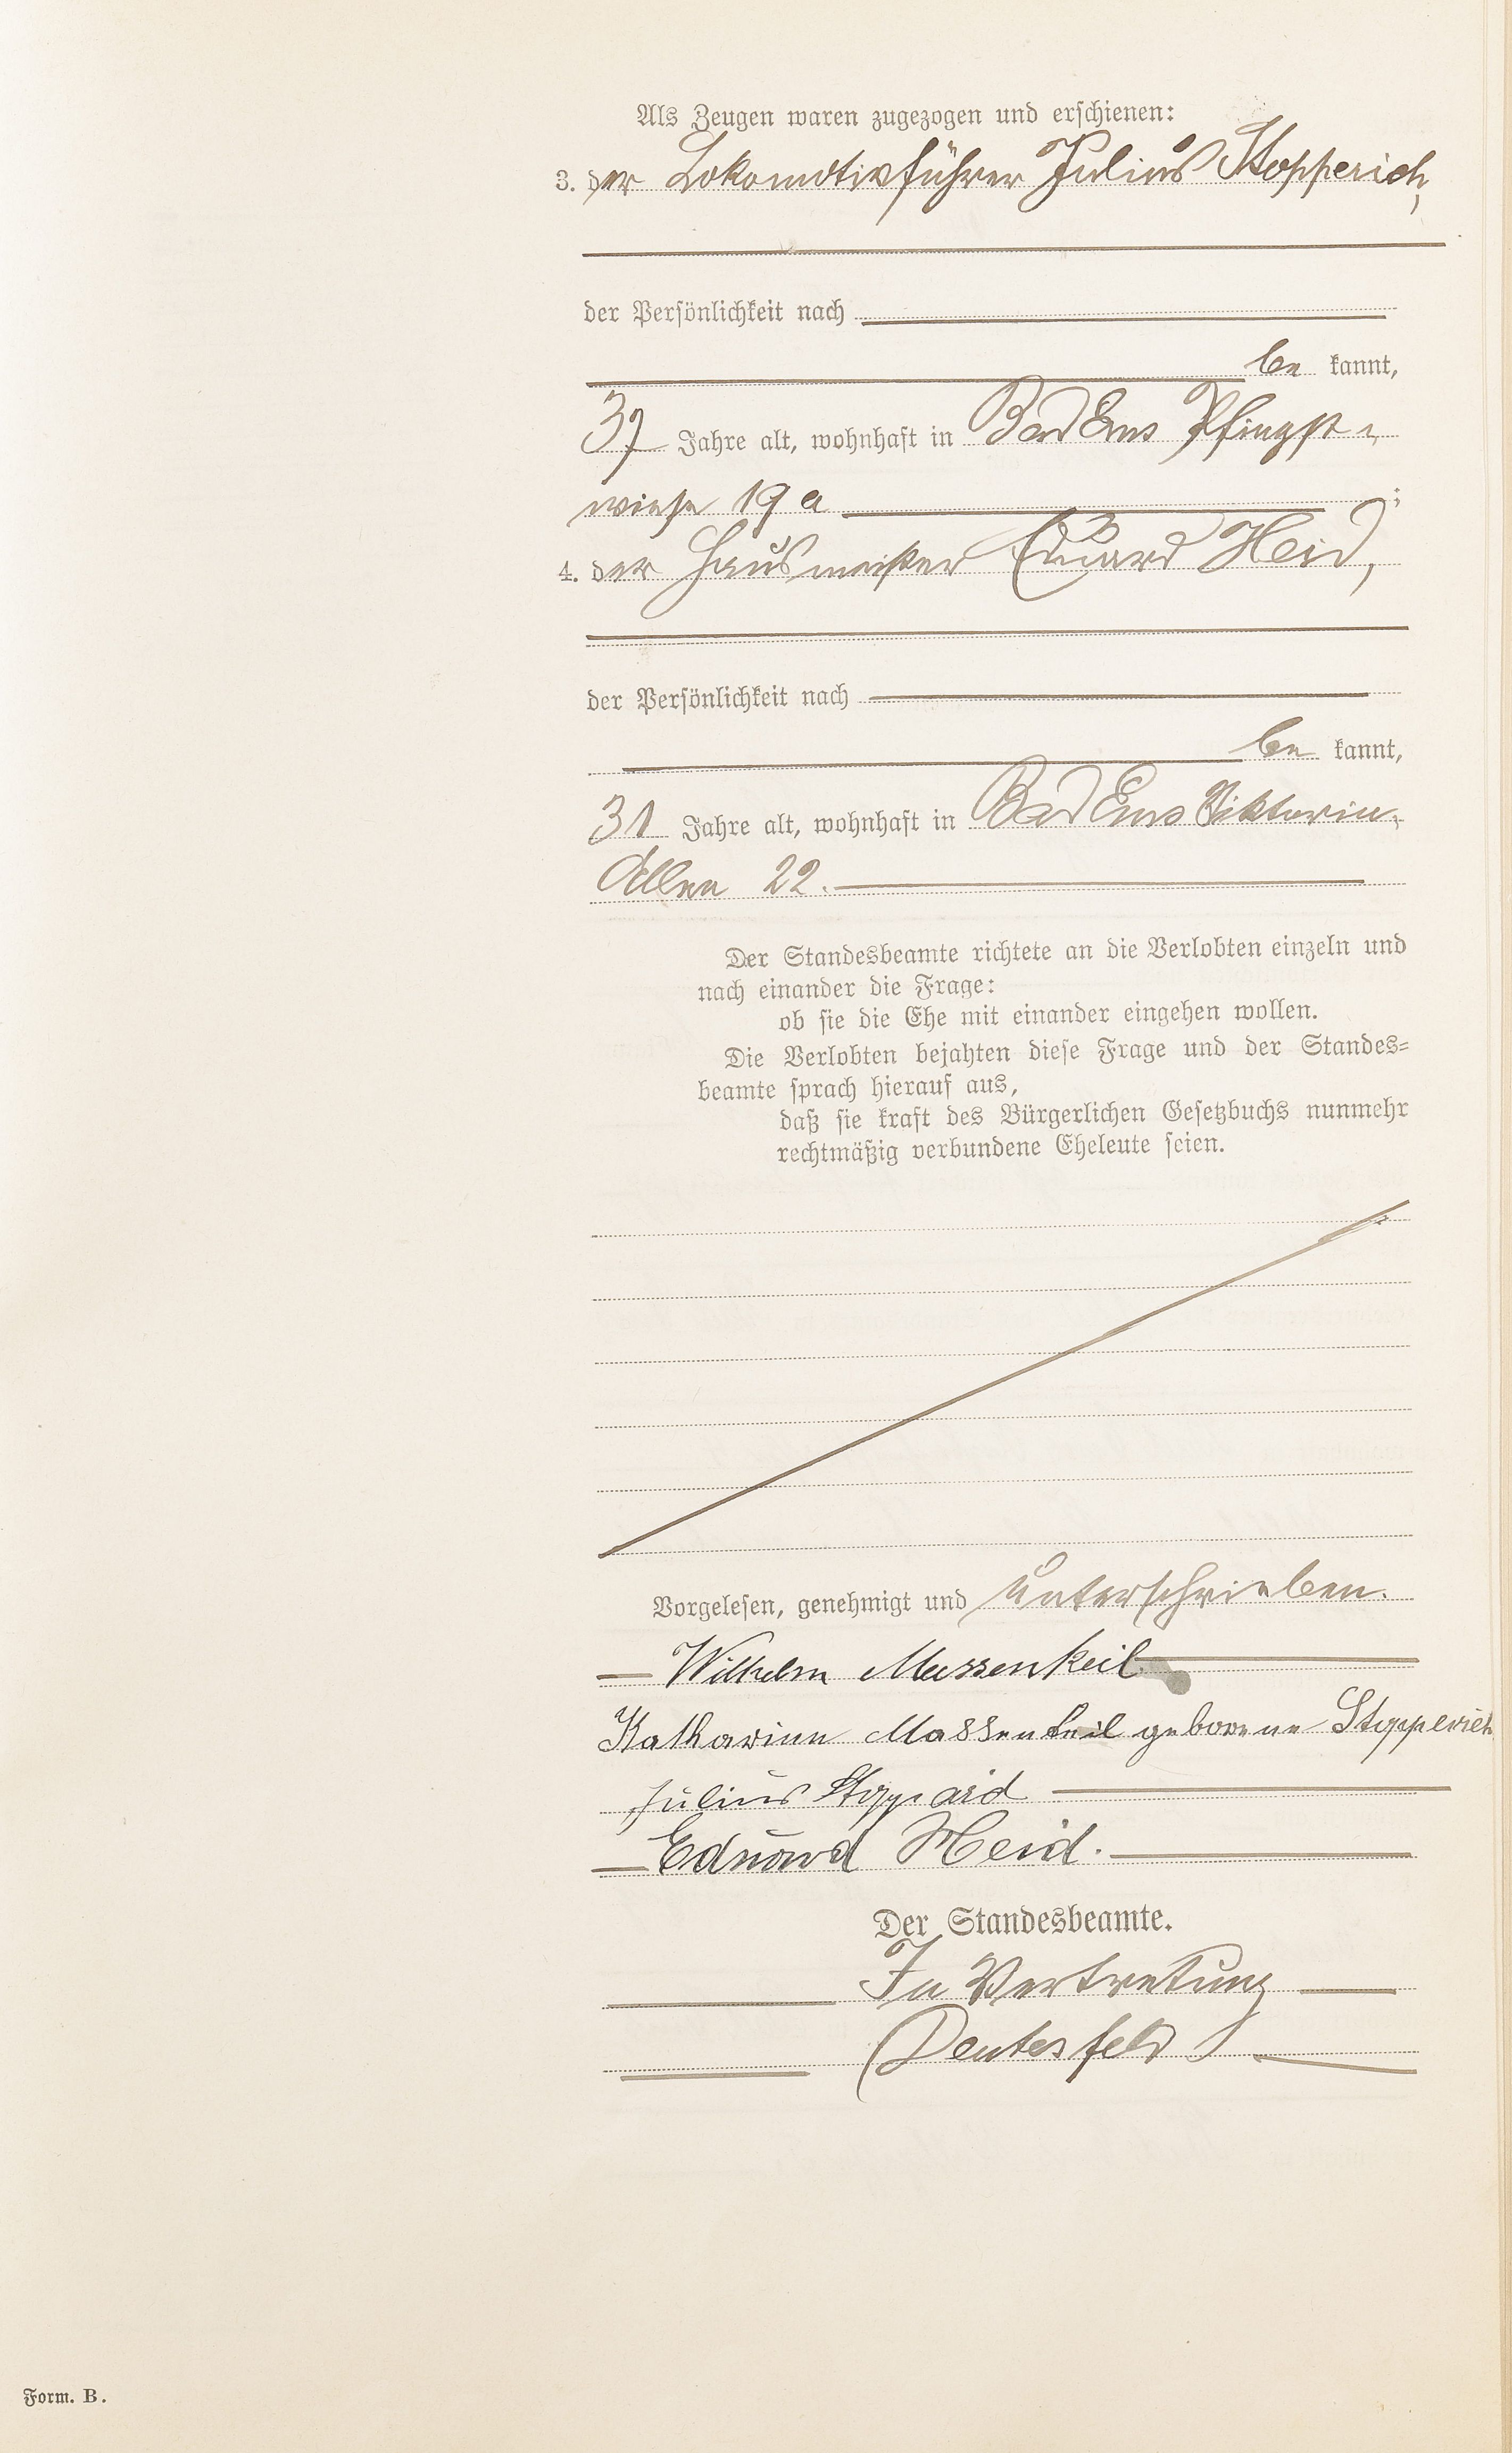 Als Zeugen waren zugezogen und erschienen:
3. der Lokomotivführer Julius Stopperich,
der Persönlichkeit nach
be kannt,
37 Jahre alt, wohnhaft in Bad Ems Pfingst-
wiese 19 a ;
4. der Hausmeister Eduard Heid,
der Persönlichkeit nach
be kannt,
31 Jahre alt, wohnhaft in Bad Ems Viktoria-
Allee 22.
Der Standesbeamte richtete an die Verlobten einzeln und
nach einander die Frage:
ob sie die Ehe mit einander eingehen wollen.
Die Verlobten bejahten diese Frage und der Standes=
beamte sprach hierauf aus,
daß sie kraft des Bürgerlichen Gesetzbuchs nunmehr
rechtmäßig verbundene Eheleute seien.
Vorgelesen, genehmigt und unterschrieben.
Wilhelm Massenkeil
Katharina Massenkeil geborene Stopperich
Julius
Eduard Heid.
Der Standesbeamte.
In Vertretung